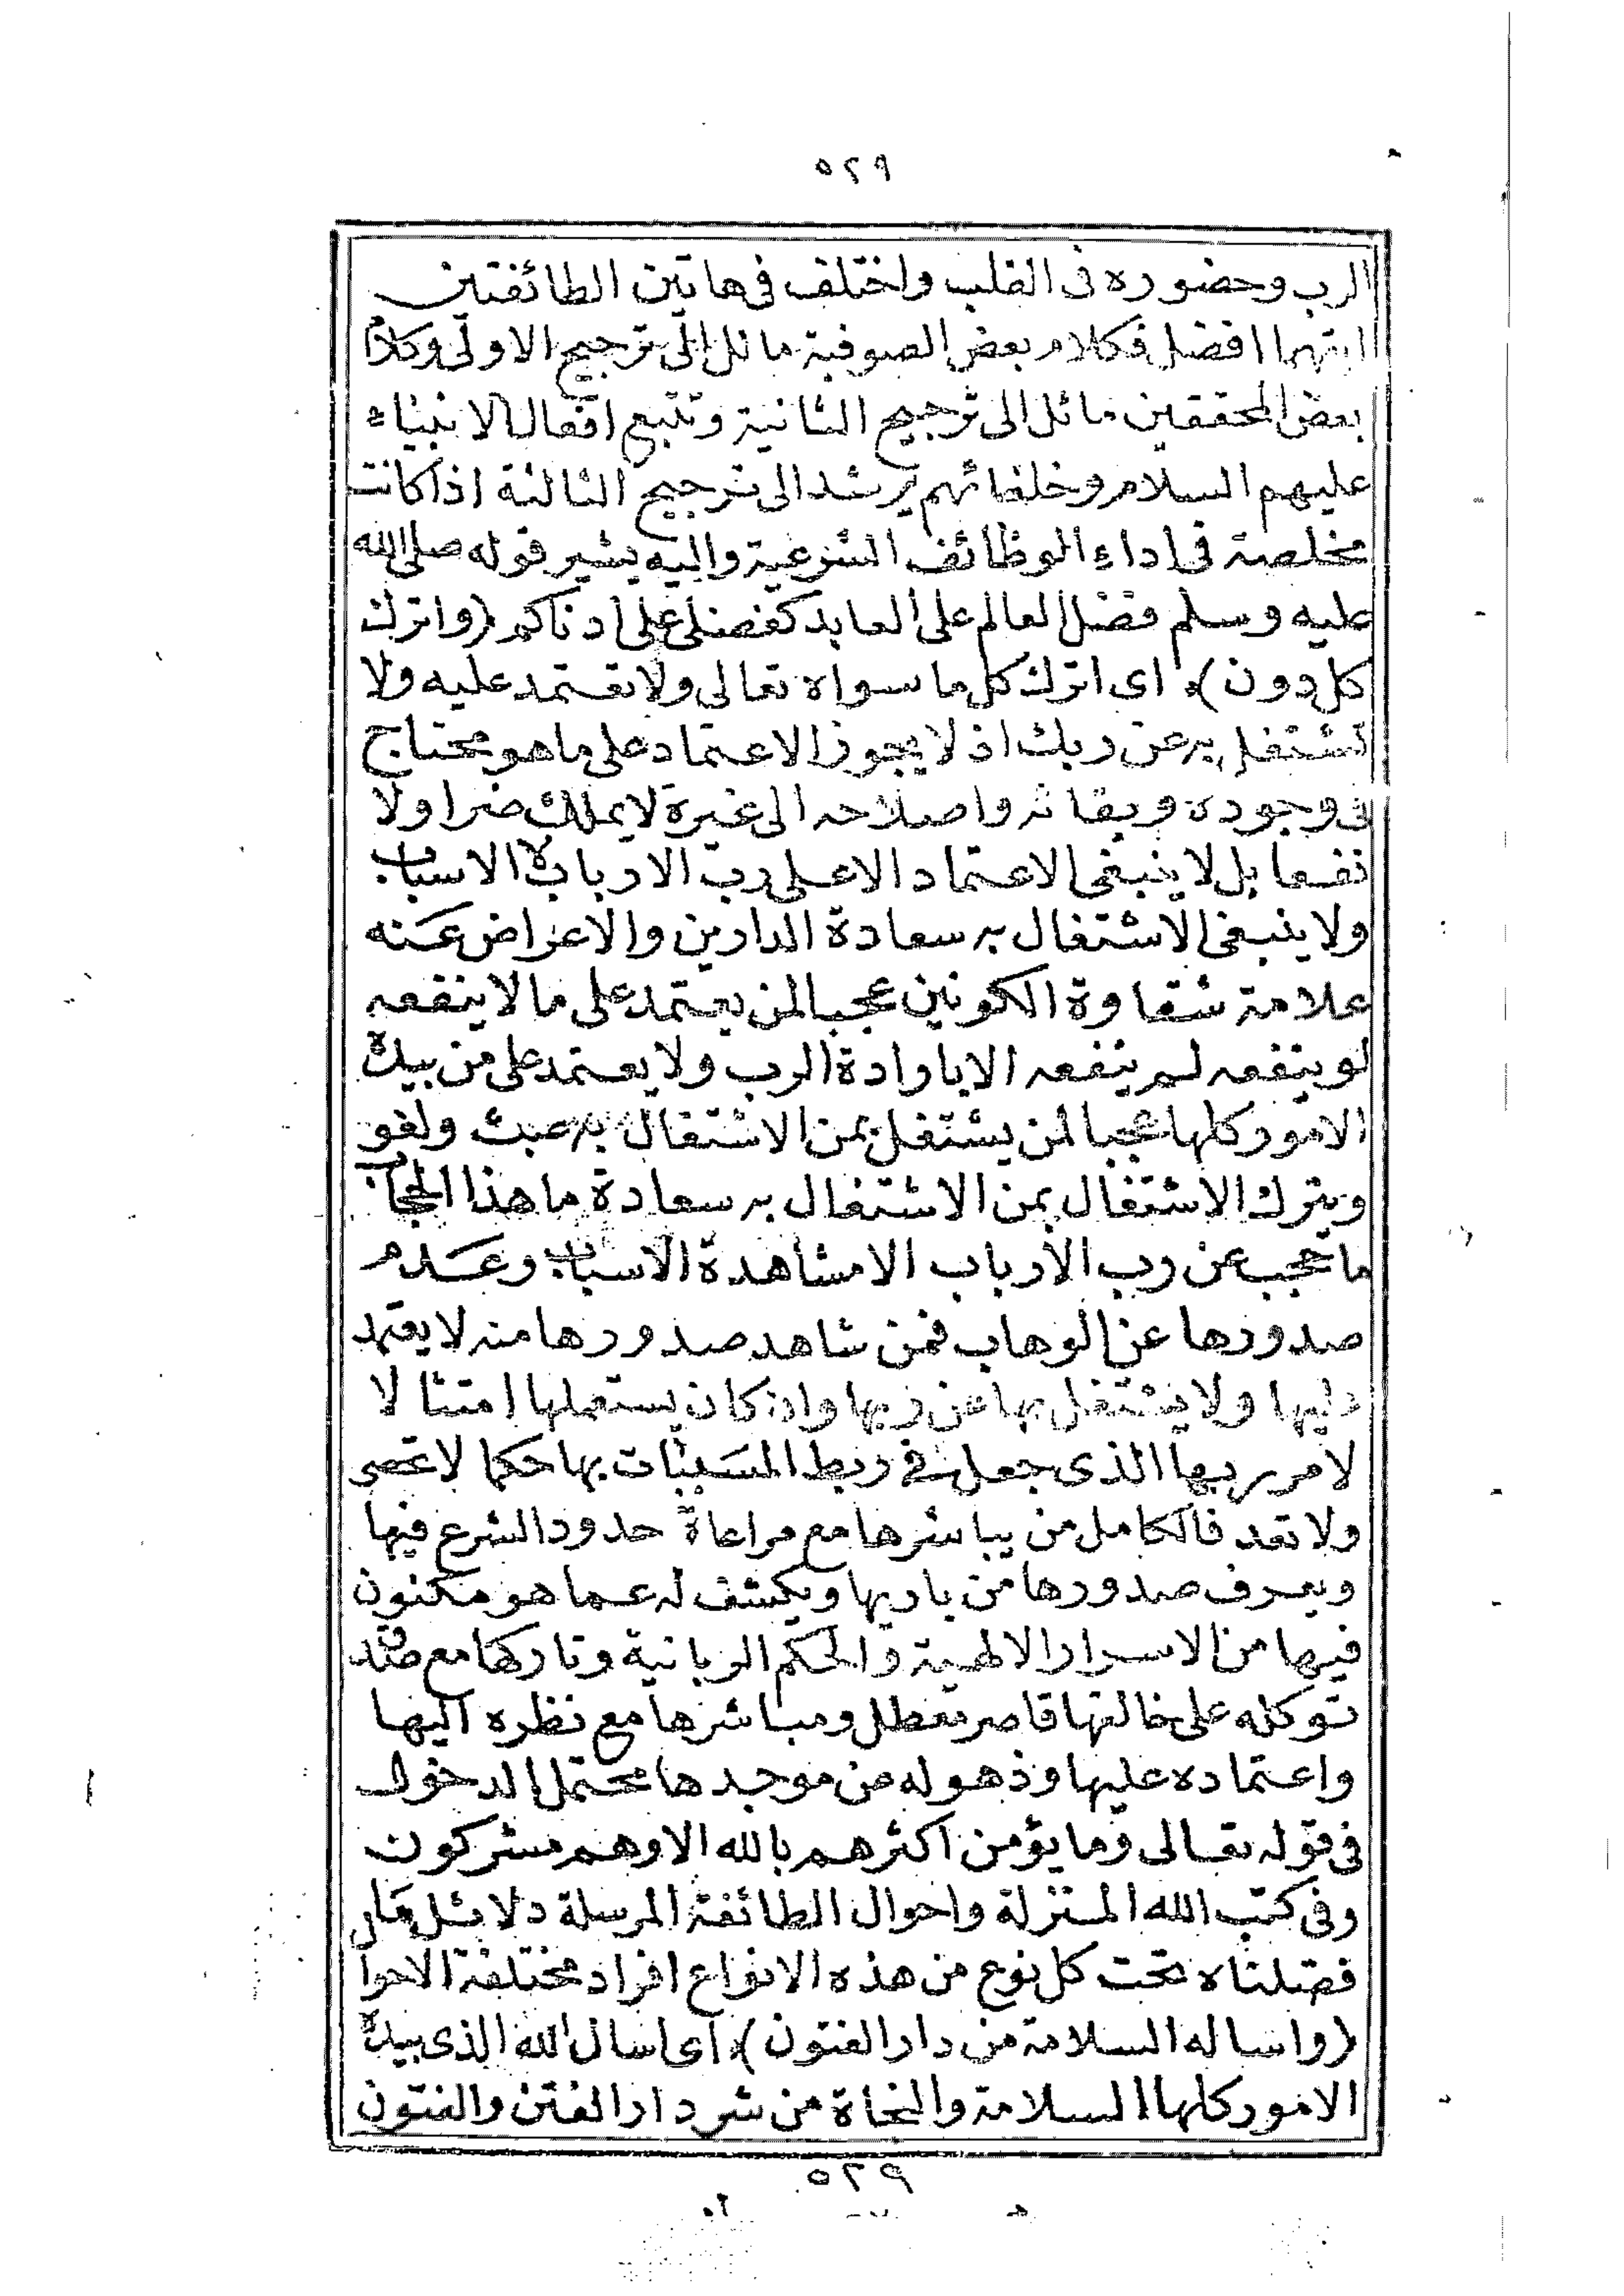 ٥٢٩
الرب وحضوره فى القلب واختلف فى هاتين الطائفتين
ايتهما افضل فكلام بعض الصوفية مائل الى ترجيح الاولى وكلام
بعض المحققين مائل الى ترجيح الثانية وتتبع افعال الانبياء
عليهم السلام وخلفائهم يرشد الى ترجيح الثالثة اذا كانت
مخلصة فى اداء الوظائف الشرعية واليه يشير قوله صلى الله
عليه وسلم فضل العالم على العابد كفضلى على ادناكم (واترك
كل دون) اى اترك كل ما سواه تعالى ولا تعتمد عليه ولا
تشتغل به عن ربك اذ لا يجوز الاعتماد على ما هو محتاج
فى وجوده وبقائه واصلاحه الى غيره لا يملك ضرا ولا
نفعا بل لا ينبغى الاعتماد الا على رب الارباب الاسباب
ولا ينبغى الاشتغال به سعادة الدارين والاعراض عنه
علامة شقاوة الكونين عجبا لمن يعتمد على ما لا ينفعه
لو ينفعه لم ينفعه الا بارادة الرب ولا يعتمد على من بيده
الامور كلها عجبا لمن يشتغل بمن الاشتغال به عبث ولغو
ويترك الاشتغال بمن الاشتغال به سعادة ما هذا الحجاب
ما حجب عن رب الارباب الا مشاهدة الاسباب وعدم
صدورها عن الوهاب فمن شاهد صدورها منه لا يعتمد
عليها ولا يشتغل بها عن ربها وان كان يستعملها امتثالا
لامر ربها الذى جعل فى ربط المسببات بها حكما لا تحصى
ولا تعد فالكامل من يباشرها مع مراعاة حدود الشرع فيها
ويعرف صدورها من باريها ويكشف له عما هو مكنون
فيها من الاسرار الالهية والحكم الربانية وتاركها مع صدق
توكله على خالقها قاصر معطل ومباشرها مع نظره اليها
واعتماده عليها وذهوله عن موجدها محتمل الدخول
فى قوله تعالى وما يؤمن اكثرهم بالله الا وهم مشركون
وفى كتب الله المنزلة واحوال الطائفة المرسلة دلائل
فصلناه تحت كل نوع من هذه الانواع افراد مختلفة الاحوا
(واساله السلامة من دار الفتون) اى اسال الله الذى بيده
الامور كلها السلامة والنجاة من شر دار الفتن والفتون
٥٢٩